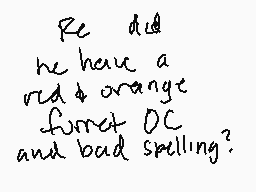 Re did
he have a
red & orange
furret OC
and bad spelling?